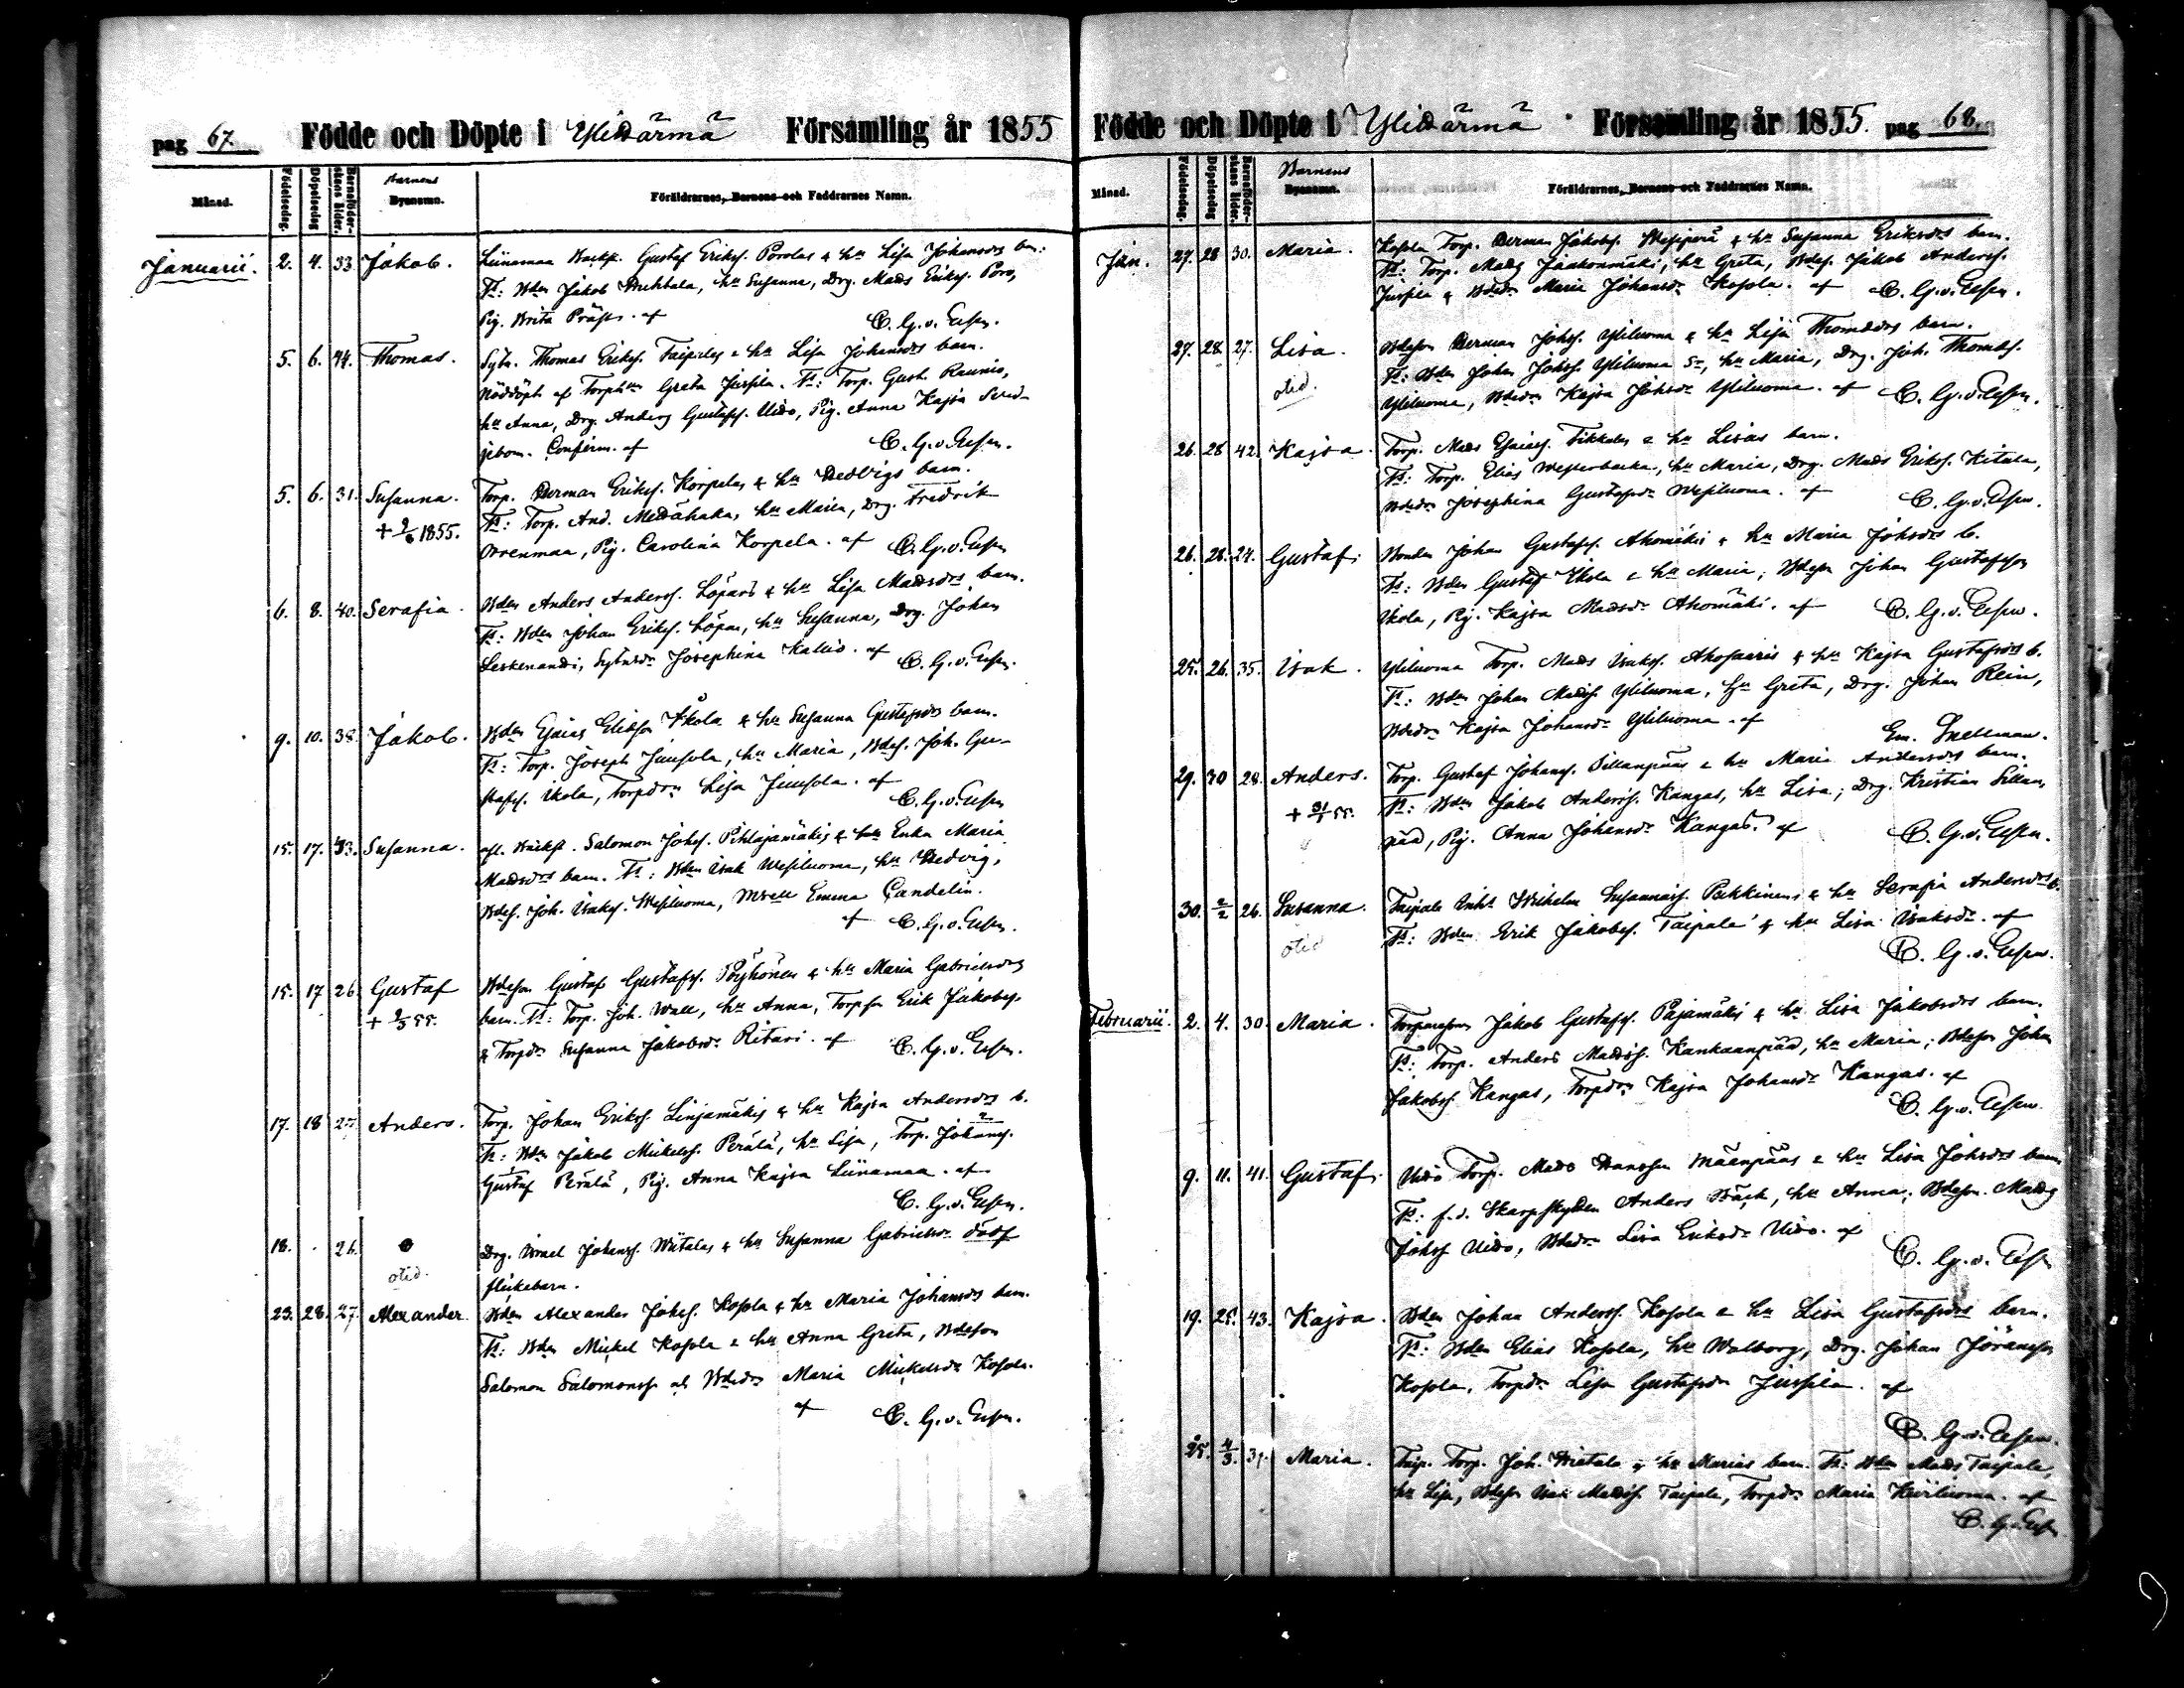 pag 67. Födde och Döpte i Ylihärmä Församling år 1855
Månad. Födelsedag. Döpelsedag Barnaföderskans ålder. Barnens Bynamn. Föräldrarnes, Barnens och Faddrarnes Namn.
Januarii. 2. 4. 33. Jakob. Liinamaa Backst. Gustaf Eriks. Porolas & hu Lisa Johansdrs bn:
Ft: Bdn Jakob Puhtala, hu Susanna, Drg. Mads Eriks. Poro,
Pig. Brita Präster. af C. G. v. Essen.
5. 6. 44. Thomas. Sytn. Thomas Eriks. Taipales & hu Lisa Johansdrs barn.
Nöddöpt af Torphu Greta Jussila. Ft: Torp. Gust. Raunio,
hu Anna, Drg. Anders Gustafss. Uido, Pig. Anna Kajsa
Confirm. af C. G. v. Essen.
5. 6. 31. Susanna. Torp. Herman Eriks. Korpelas & hu Hedvigs barn.
+ 1855. Ft: Torp. And. hu Maria, Drg. Fredrik
Orrenmaa, Pig. Carolina Korpela. af C. G. v. Essen
6. 8. 40. Serafia. Bdn Anders Anderss. Löpars & hu Lisa Madsdrs barn.
Ft: Bdn Johan Eriks. Löpar, hu Susanna, Drg. Johan
Leskenanti, Sytnsdr Josephina Kallio. af C. G. v. Essen.
9. 10. 38. Jakob. Bdn Esaias Eliasson Ikola & hu Susanna Gustafsdrs barn.
Ft: Torp. Joseph Junsola, hu Maria, Bdes. Joh. Gu-
stafss. Ikola, Torpdrn Lisa Junsola. af
C. G. v. Essen
15. 17. 33. Susanna. afl. Backst. Salomon Johss. Pihlajamäkis & Enka Maria
Madsdrs barn. Ft: Bdn Isak Wesiluoma, hu Hedvig,
Bdes. Joh. Isakss. Wesiluoma, Mslle Emma Candelin.
af C. G. v. Essen.
15. 17 26. Gustaf Bdeson Gustaf Gustafss. Pöyhönen & hu Maria Gabrielsdrs
+ 55. barn. Ft: Torp. Joh. Wall, hu Anna, Torpson Erik Jakobss.
& Torpdr Susanna Jakobsdr Ritari. af C. G. v. Essen.
17. 18 27 Anders. Torp. Johan Eriks. Linjamäkis & hu Kajsa Andersdrs b.
Ft: Bdn Jakob Mickelss. Perälä, hu Lisa, Torp. Johanss.
Gustaf Perälä, Pig. Anna Kajsa Liinamaa. af
C. G. v. Essen.
18. . 26. Drg. Israel Johanss. Wiitalas & hu Susanna Gabrielsdr dödf
otid. flickebarn.
23. 28. 27. Alexander. Bdn Alexander Johss. Kosola & hu Maria Johansdrs barn.
Ft: Bdn Mickel Kosola & hu Anna Greta, Bdeson
Salomon Salomonss. och Bdedr Maria Mickelsdr Kosola.
af C. G. v. Essen.
Födde och Döpte i Ylihärmä Församling år 1855. pag 68.
Månad. Födelsedag. Döpelsedag Barnaföderskans ålder. Barnens Bynamn. Föräldrarnes, Barnens och Faddrarnes Namn.
Jan. 27. 28 30. Maria. Kosola Torp. Herman Jakobss. & hu Susanna Eriksdrs barn.
Ft: Torp. Mads Jaakonmäki, hu Greta, Bdes. Jakob Anderss.
Jussila & Bdedr Maria Johansdr Kosola. af C. G. v. Essen.
27. 28 27. Lisa. Bdeson Herman Johss. Yliluoma & hu Lisa Thomasdrs barn.
otid. Ft: Bdn Johan Johss. Yliluoma Sr, hu Maria, Drg. Joh. Thomass.
Yliluoma, Bdedr Kajsa Johsdr Yliluoma. af C. G. v. Essen.
26. 28 42. Kajsa. Torp. Mads Esaiass. Tikkales & hu Lisas barn.
Ft: Torp. Elias Westerbacka, hu Maria, Drg. Mads Eriks. Kitula,
Bdedr Josephina Gustafsdr Wesiluoma. af C. G. v. Essen.
26. 28. 24. Gustaf. Bonden Johan Gustafss. Ahomäkis & hu Maria Johsdrs b.
Ft: Bdn Gustaf Ikola & hu Maria; Bdeson Johan Gustafsson
Ikola, Pig. Kajsa Madsdr Ahomäki. af C. G. v. Essen.
25. 26. 35. Isak. Yliluoma Torp. Mads Isakss. Ahosaaris & hu Kajsa Gustafsdrs b.
Ft: Bdn Johan Madss. Yliluoma, hu Greta, Drg. Johan Rein,
Bdedr Kajsa Johansdr Yliluoma. af Em. Snellman.
29. 30 28. Anders. Torp. Gustaf Johanss. Sillanpääs & hu Maria Andersdrs barn.
+ 31/1 55. Ft: Bdn Jakob Anderss. Kangas, hu Lisa; Drg. Kristian Sillan-
pää, Pig. Anna Johansdr Kangas. af C. G. v. Essen.
30. 2/2 26. Susanna. Taipale Inhs Wilhelm Susannass. Pukkinens & hu Serafia Andersdrs b.
otid Ft: Bdn Erik Jakobss. Taipale & hu Lisa Isaksdr. af
C. G. v. Essen.
Februarii. 2. 4. 30. Maria. Torparesonen Jakob Gustafss. Pajamäkis & hu Lisa Jakobsdrs barn.
Ft: Torp. Anders Madss. Kankaanpää, hu Maria; Bdeson Johan
Jakobss. Kangas, Torpdrn Kajsa Johansdr Kangas. af
C. G. v. Essen
9. 11. 41. Gustaf. Uido Torp. Mads Hansson Mäenpääs & hu Lisa Johsdrs barn
Ft: f.d. Skarpskytten Anders Bäck, hu Anna; Bdeson Mads
Johss Uido, Bdedr Lisa Eriksdr Uido. af
C. G. v. Essen
19. 25. 43. Kajsa. Bdn Johan Anderss. Kosola & hu Lisa Gustafsdrs barn.
Ft: Bdn Elias Kosola, hu Walborg, Drg. Johan Jöransson
Kosola, Torpdr Lisa Gustafsdr Jussila. af
C. G. v. Essen.
25. 4/3. 31. Maria. Taip. Torp. Joh. Hietala & hu Marias barn. Ft: Bdn Mads Taipale,
hu Lisa, Bdeson Isak Madss. Taipale, Torpdr Maria af
C. G. v. Essen